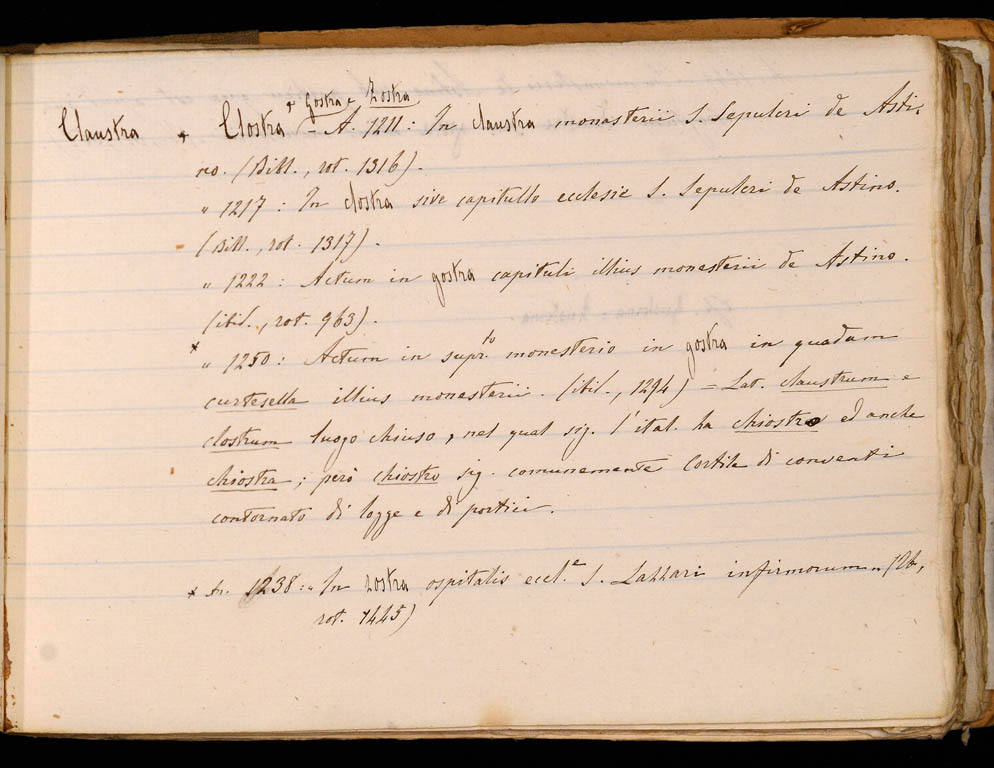 e Gostra e Zostra
Claustra e Clostra – A. 1211: In claustra monasterii S. Sepulcri de Asti-
no. (Bibl., rot. 1316).
" 1217: In clostra sive capitullo ecclesie S. Sepulcri de Astino.
(Bibl., rot. 1317).
" 1222: Actum in gostra capituli illius monesterii de Astino.
(ibil., rot. 963).
* " 1250: Actum in supr.to monesterio in gostra in quadam
curtesella illius monesterii. (ibil., 1294) = Lat. claustrum e
clostrum luogo chiuso, nel qual sig. l'ital. ha chiostro ed anche
chiostra; però chiostro sig. comunemente Cortile di conventi
contornato di logge e di portici.
* An. 1238: " In zostra ospitalis eccl.e S. Lazzari infirmorum " (Ib,
rot. 1445)